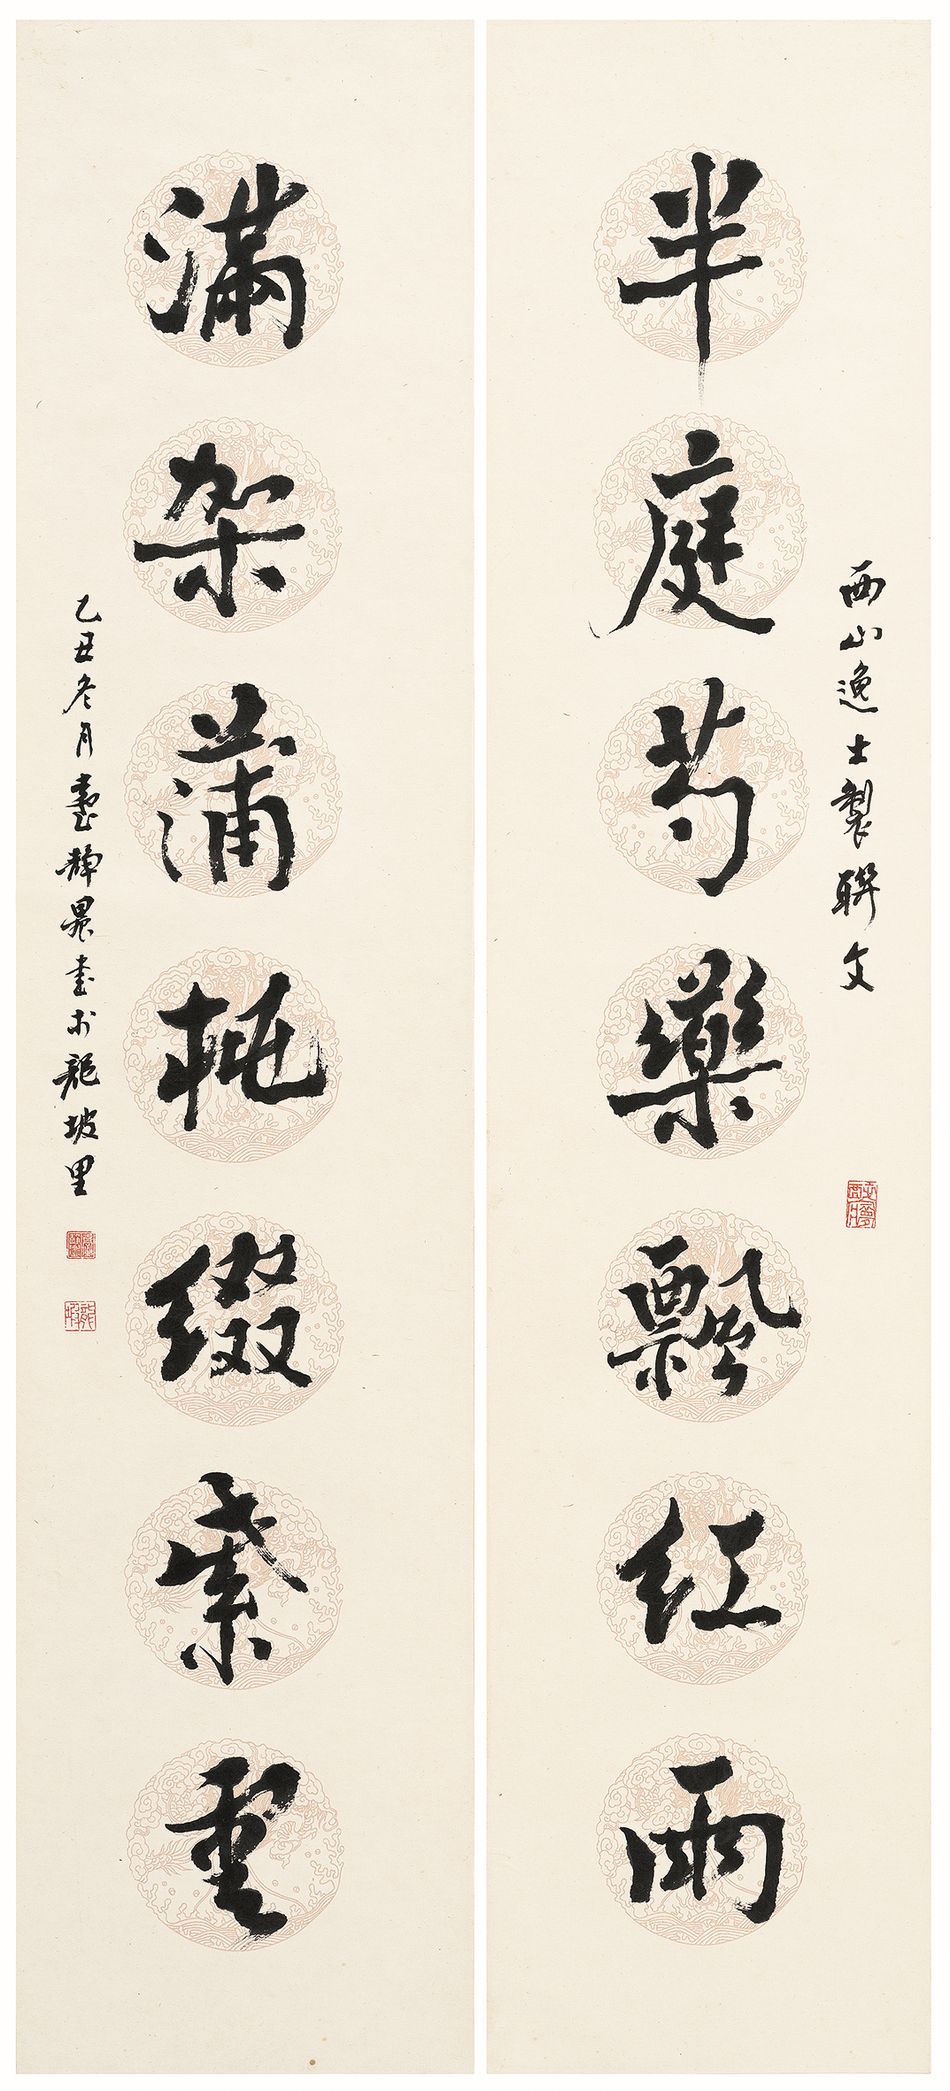 西山逸士製聯文
半庭芍藥飄紅雨
滿架蒲桃綴紫雲
乙丑冬月臺靜農書於龍坡里